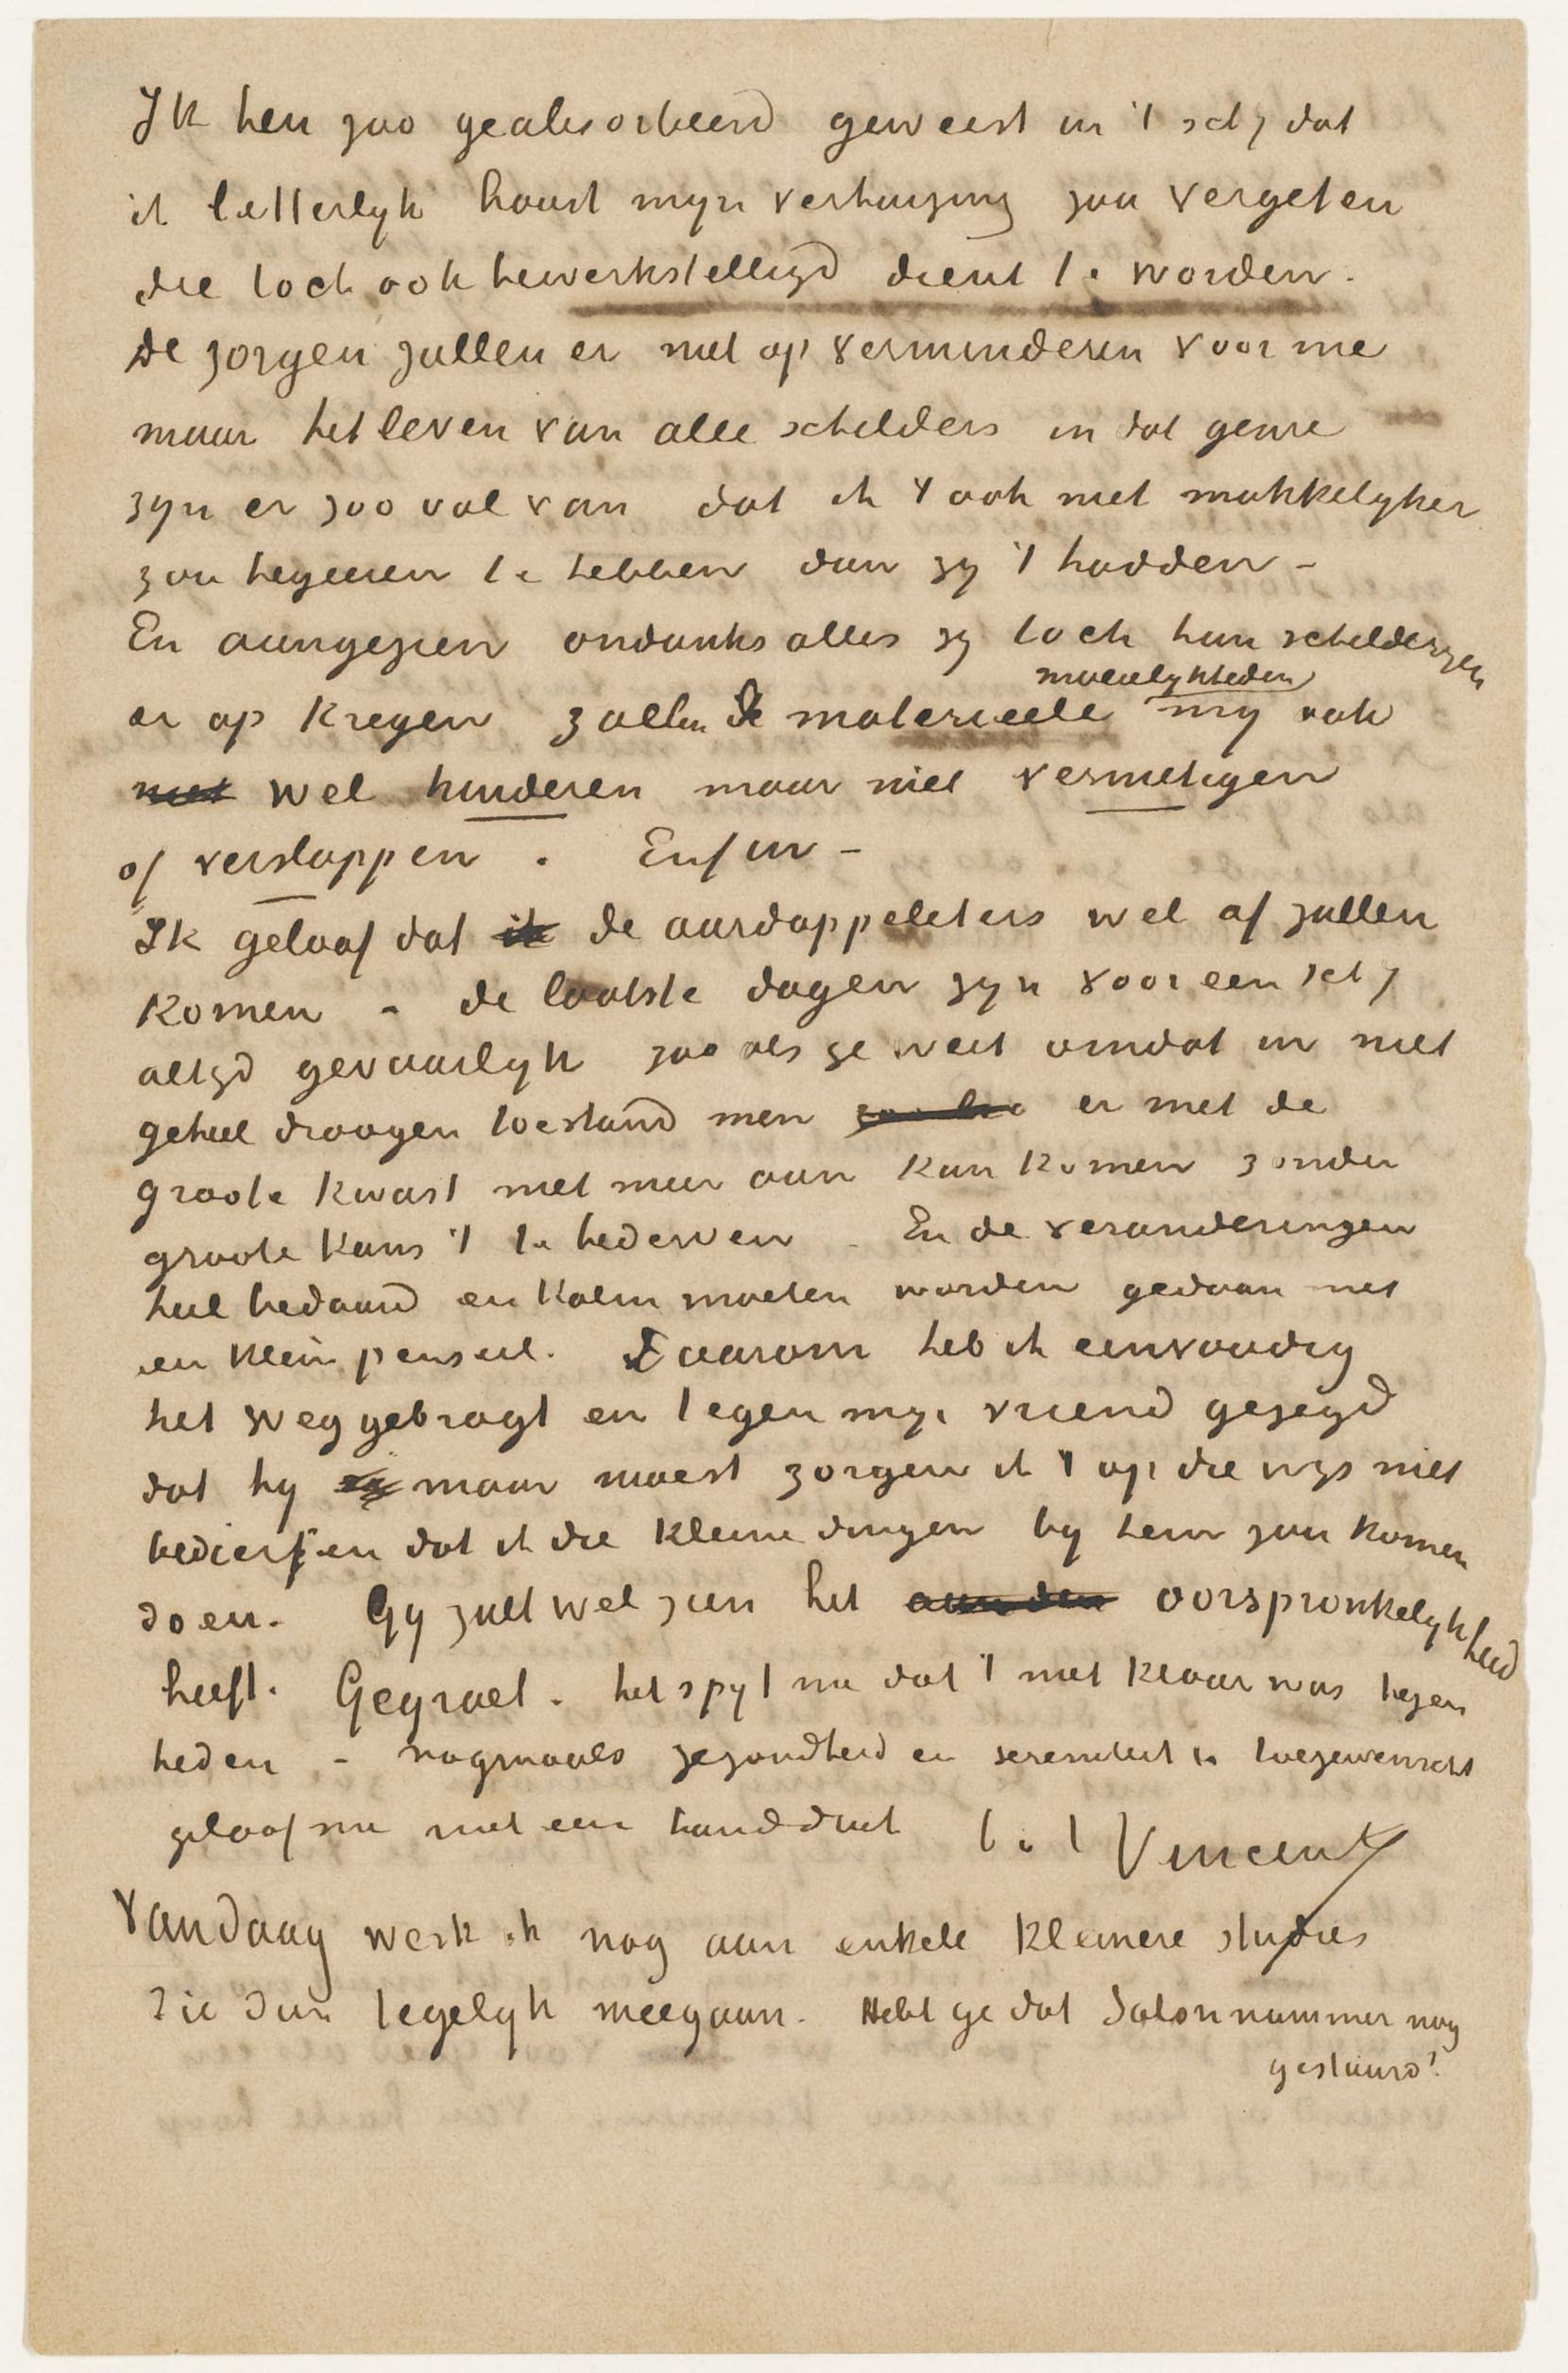 Ik ben zoo geabsorbeerd geweest in 't schij dat
ik letterlyk haast myn verhuizing zou vergeten
die toch ook bewerkstelligd dient te worden.
De zorgen zullen er niet op verminderen voor me
maar het leven van alle schilders in dat genre
zyn er zoo vol van dat ik 't ook niet makkelyker
zou begeeren te hebben dan zy 't hadden –
En aangezien ondanks alles zy toch hun schilderyen
moeielykheden
er op kregen zullen de materieele my ook
niet wel hinderen maar niet vernietigen
of verslappen. Enfin –
Ik geloof dat ik de aardappeleters wel af zullen
komen – de laatste dagen zyn voor een schij
altyd gevaarlyk zooals ge weet omdat in niet
geheel droogen toestand men er met de
groote kwast niet meer aan kan komen zonder
groote kans 't te bederven – En de veranderingen
heel bedaard en kalm moeten worden gedaan met
een klein penseel. Daarom heb ik eenvoudig
het weggebragt en tegen myn vriend gezegd
dat hy maar moest zorgen ik 't op die wys niet
bedierf en dat ik die kleine dingen by hem zou komen
doen. Gy zult wel zien het aan den oorspronkelykheid
heeft. Gegroet – het spyt me dat 't niet klaar was tegen
heden – nogmaals gezondheid en sereniteit u toegewenscht
geloof me met een handdruk t.à.t. Vincent
Vandaag werk ik nog aan enkele kleinere studies
die dan tegelyk meegaan. Hebt ge dat Salonnummer nog
gestuurd?